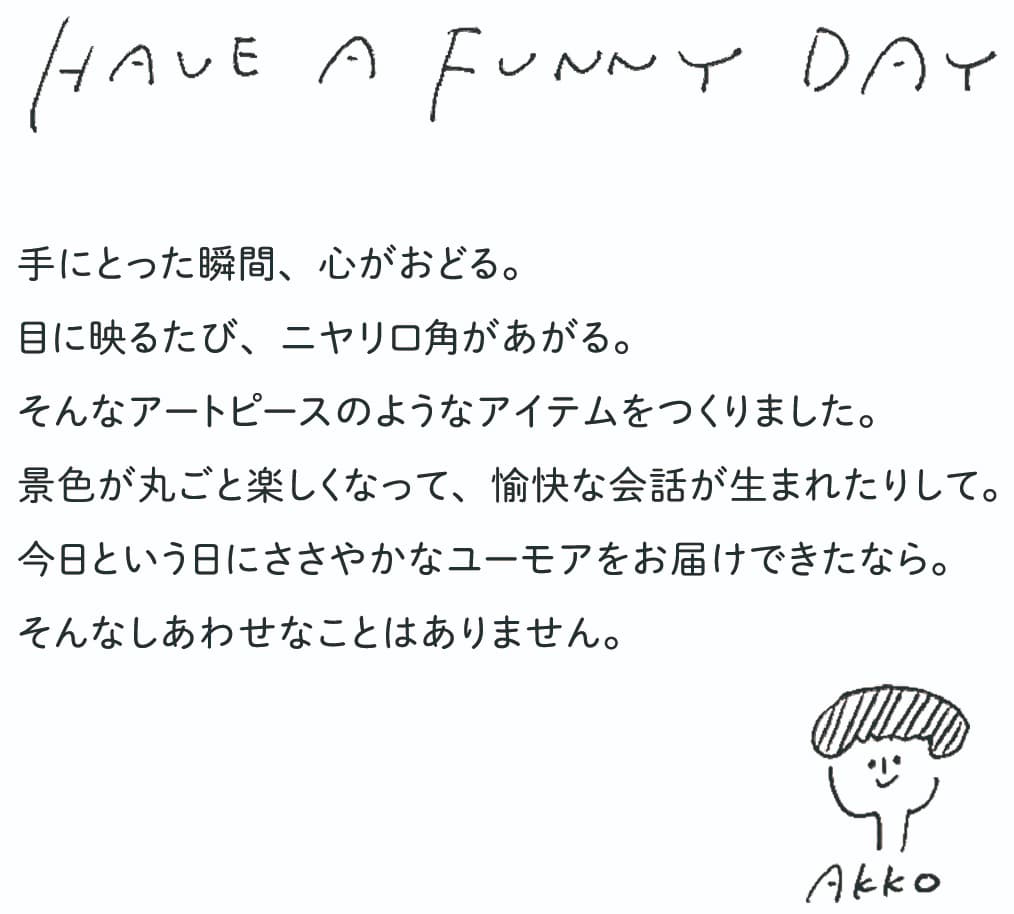 HAVE A FUNNY DAY
手にとった瞬間、心がおどる。
目に映るたび、ニヤリ口角があがる。
そんなアートピースのようなアイテムをつくりました。
景色が丸ごと楽しくなって、愉快な会話が生まれたりして。
今日という日にささやかなユーモアをお届けできたなら。
そんなしあわせなことはありません。
AKKO